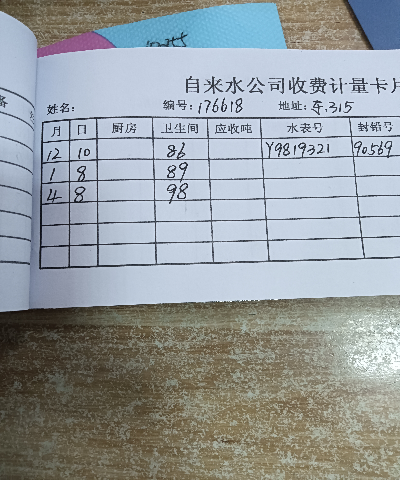 自来水公司收费计量卡片
姓名: 编号: 176618 地址: 东.315
月 日 厨房 卫生间 应收吨 水表号 封铅号
12 10 86 Y9819321 90569
1 8 89
4 8 98